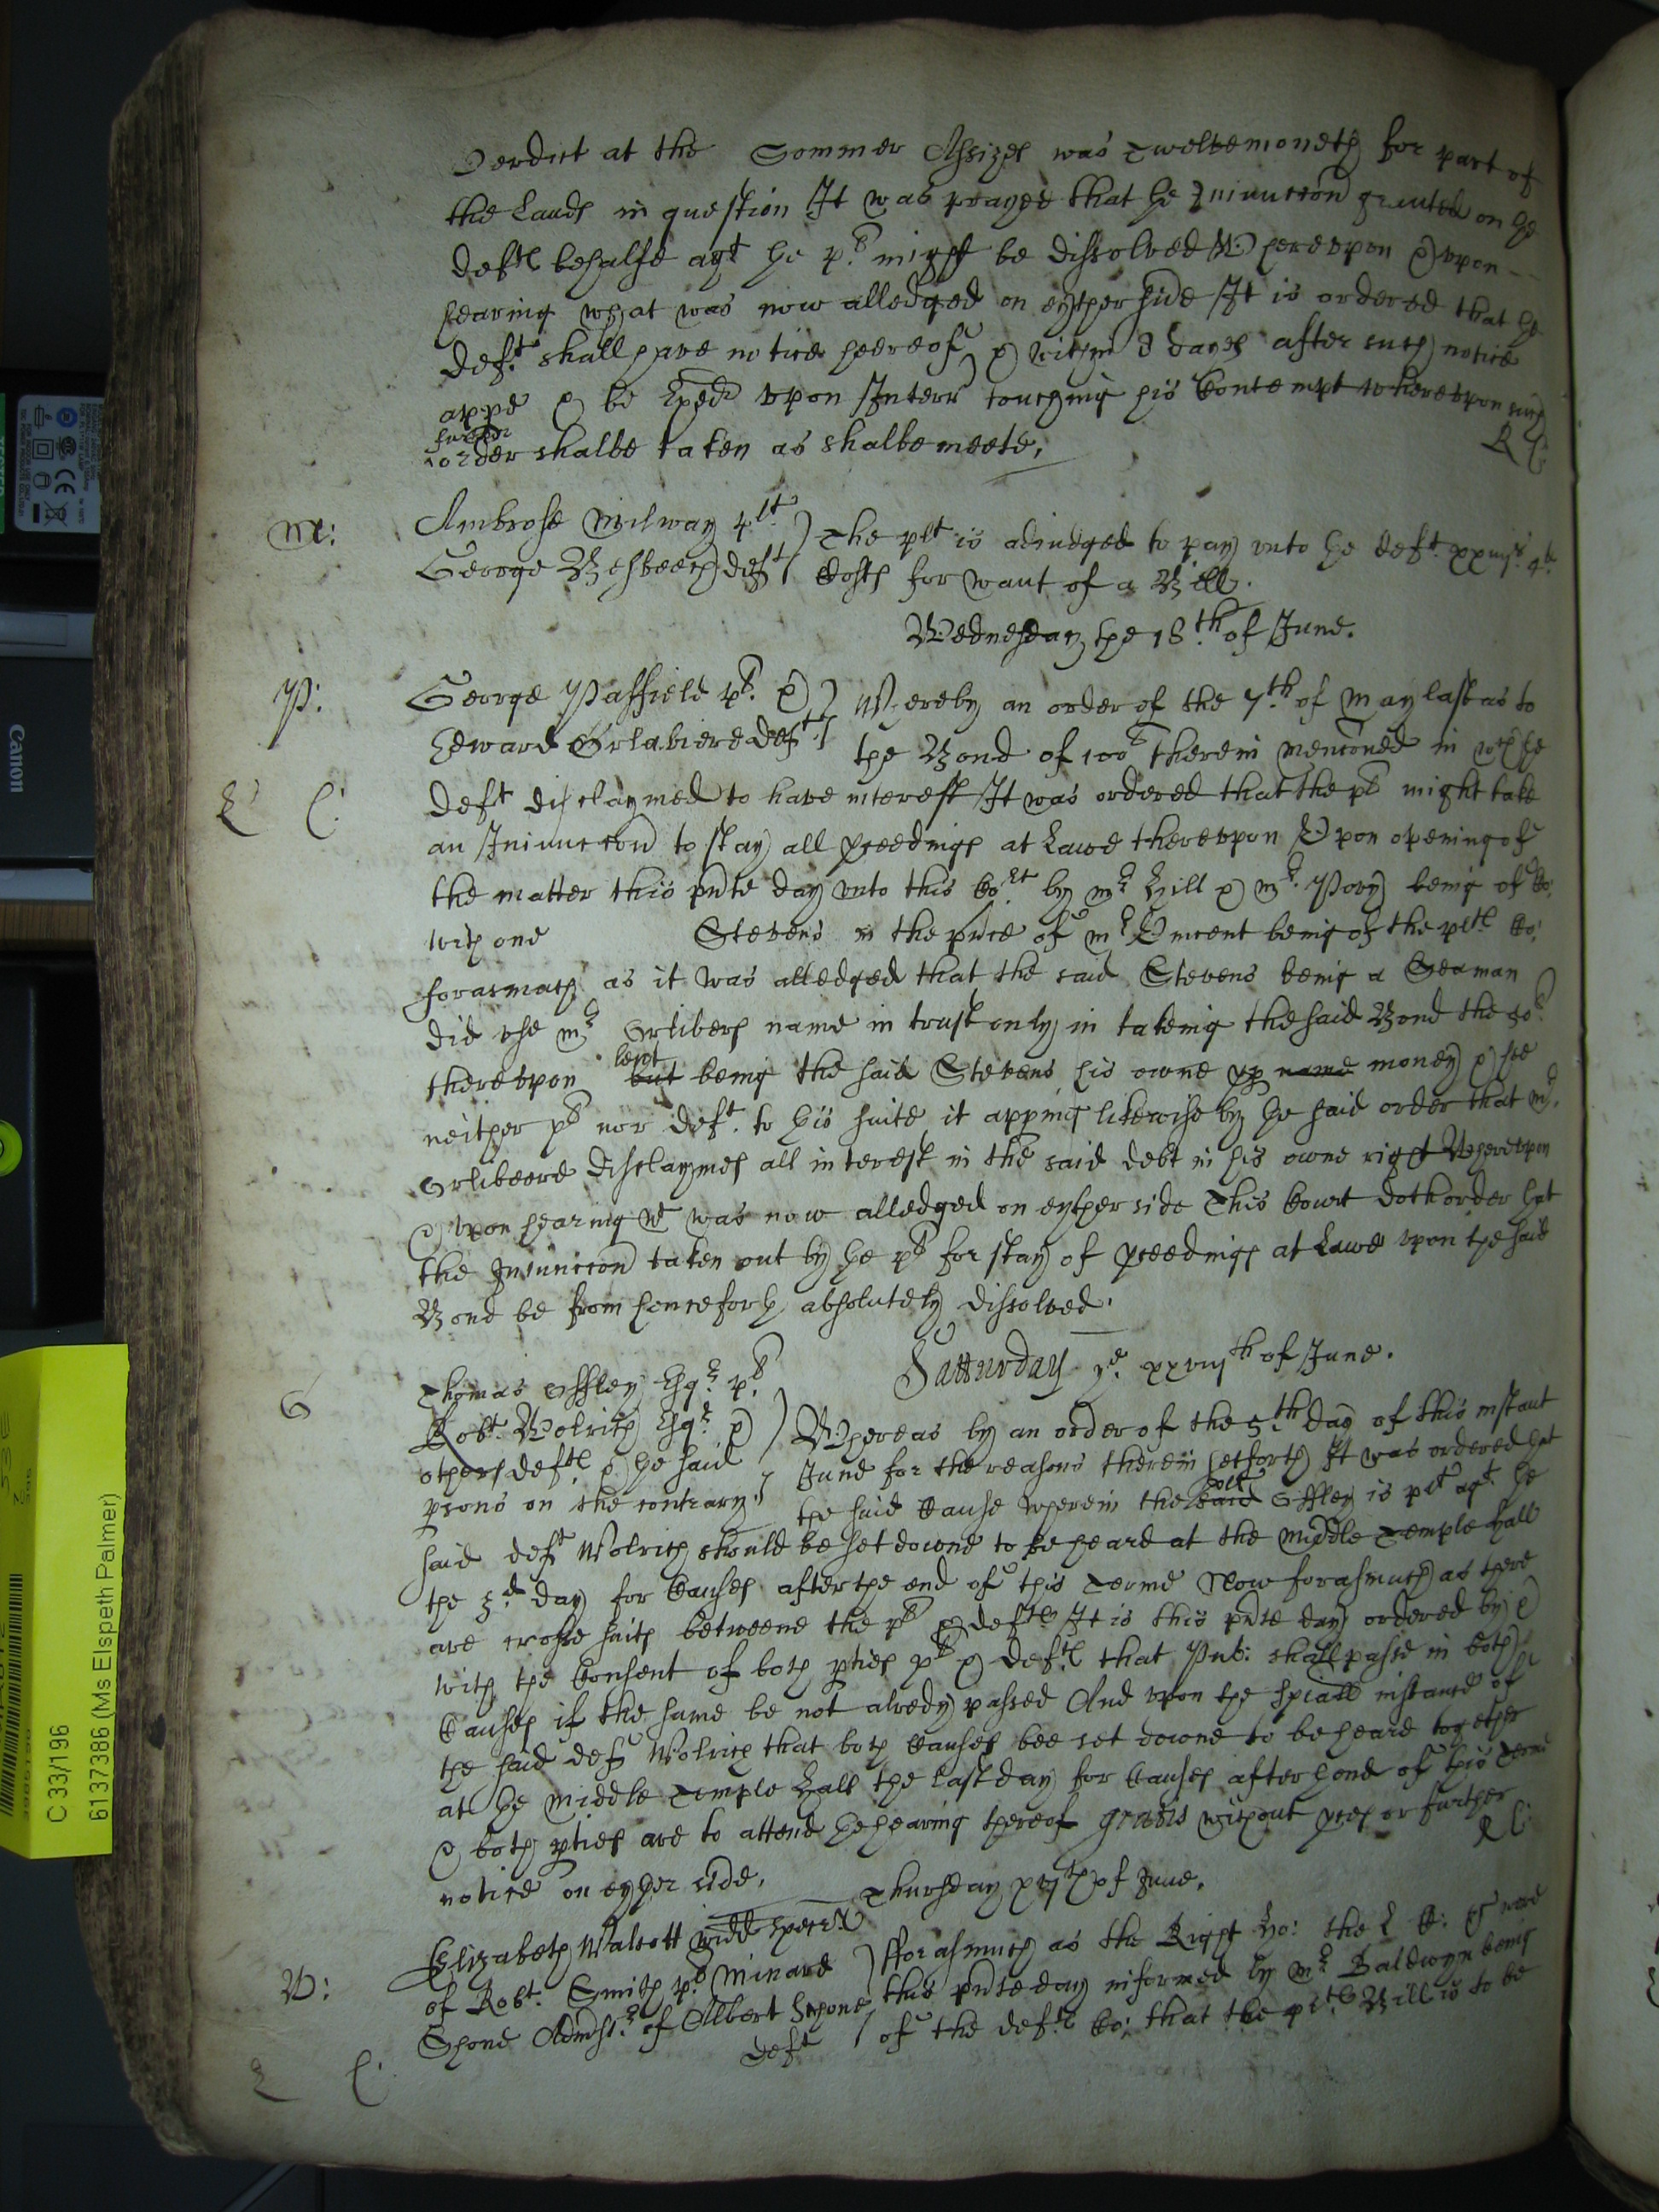 Verdict at the Sommer Assizes was Twelvemoneth for part of
the Lands in question It was prayed that ye Iniunccon graunted on ye
defts behalfe agt ye plt might be dissolved Wherevpon & vpon
hearing what was now alledged on eyther side It is ordered that ye
deft shall have notice heereof & within 8 dayes after such notice
appe & be exed vpon Interr touching his Contempt wherevpon such
further
order shalbe taken as shalbe meete,
R L
M: Ambrose Milway plt
The plt is adiudged to pay vnto ye deft
George Besbeech deft
Costs for want of a Bill.
Wednesday the 18th of June.
P: George Passfield plt
Whereby an order of the 7th of May last as to
Edward deft
the Bond of 100l therein mencioned in wch he
L C:
deft disclaymed to have interest It was ordered that the plt might take
an Iniunccon to stay all proceedings at Lawe therevpon Vpon opening of
the matter this pnte day vnto this Cort by Mr Hill & Mr Pory being of Co:
with one Stevens in the pnce of Mr Vincent being of the plts Co:
forasmuch as it was alledged that the said Stevens being a Seaman
did vse Mr Orlibers name in trust only in takeing the said Bond the 50l
lent
therevpon but being the said Stevens his owne pp name money & hee
neither plt nor deft to this suite it apping likewise by ye said order that Mr
Orlibeere disclaymes all interest in the said debt in his owne right Wherevpon
& vpon hearing wt was now alledged on eyther side This Court doth order that
the Iniunccon taken out by ye plt for stay of proceedings at Lawe vpon the said
Bond be from henceforth absolutely dissolved.
Satturday ye xxviijth of June.
O Thomas Offley Esqr plt
Robt Wolrich Esqr &
Whereas by an order of the 5th day of this instant
others defts & the said
June for the reasons therein setforth It was ordered that
psons on the contrary
the said Cause wherein the said Offley is plt agt the
said deft Wolrich should be set downe to be heard at the Middle Temple Hall
the 3d day for Causes after the end of this Terme Now forasmuch as there
are crosse suits betweene the plt & defts It is this pnte day ordered by &
with the Consent of both pties plt & defts that Pub: shall passe in both
Causes if the same be not alredy passed And vpon the spiall instance of
the said deft Wolrich that both Causes bee set downe to be heard together
at the Middle Temple Hall the last day for Causes after thend of this Terme
& both pties are to attend the hearing thereof gratis without pces or further
notice on eyther side.
R L:
Thursday of June.
W: Elizabeth Walcott widd
fforasmuch as the Right Ho: the L
of Robt. Smith plt Minard
this pnte day informed by Mr Baldwyn being
Shone Admstr of Albert Shone
of the defts Co: that the plts Bill is to be
deft
L C:
C 33/196
6137386 (Ms Elspeth Palmer)
Canon